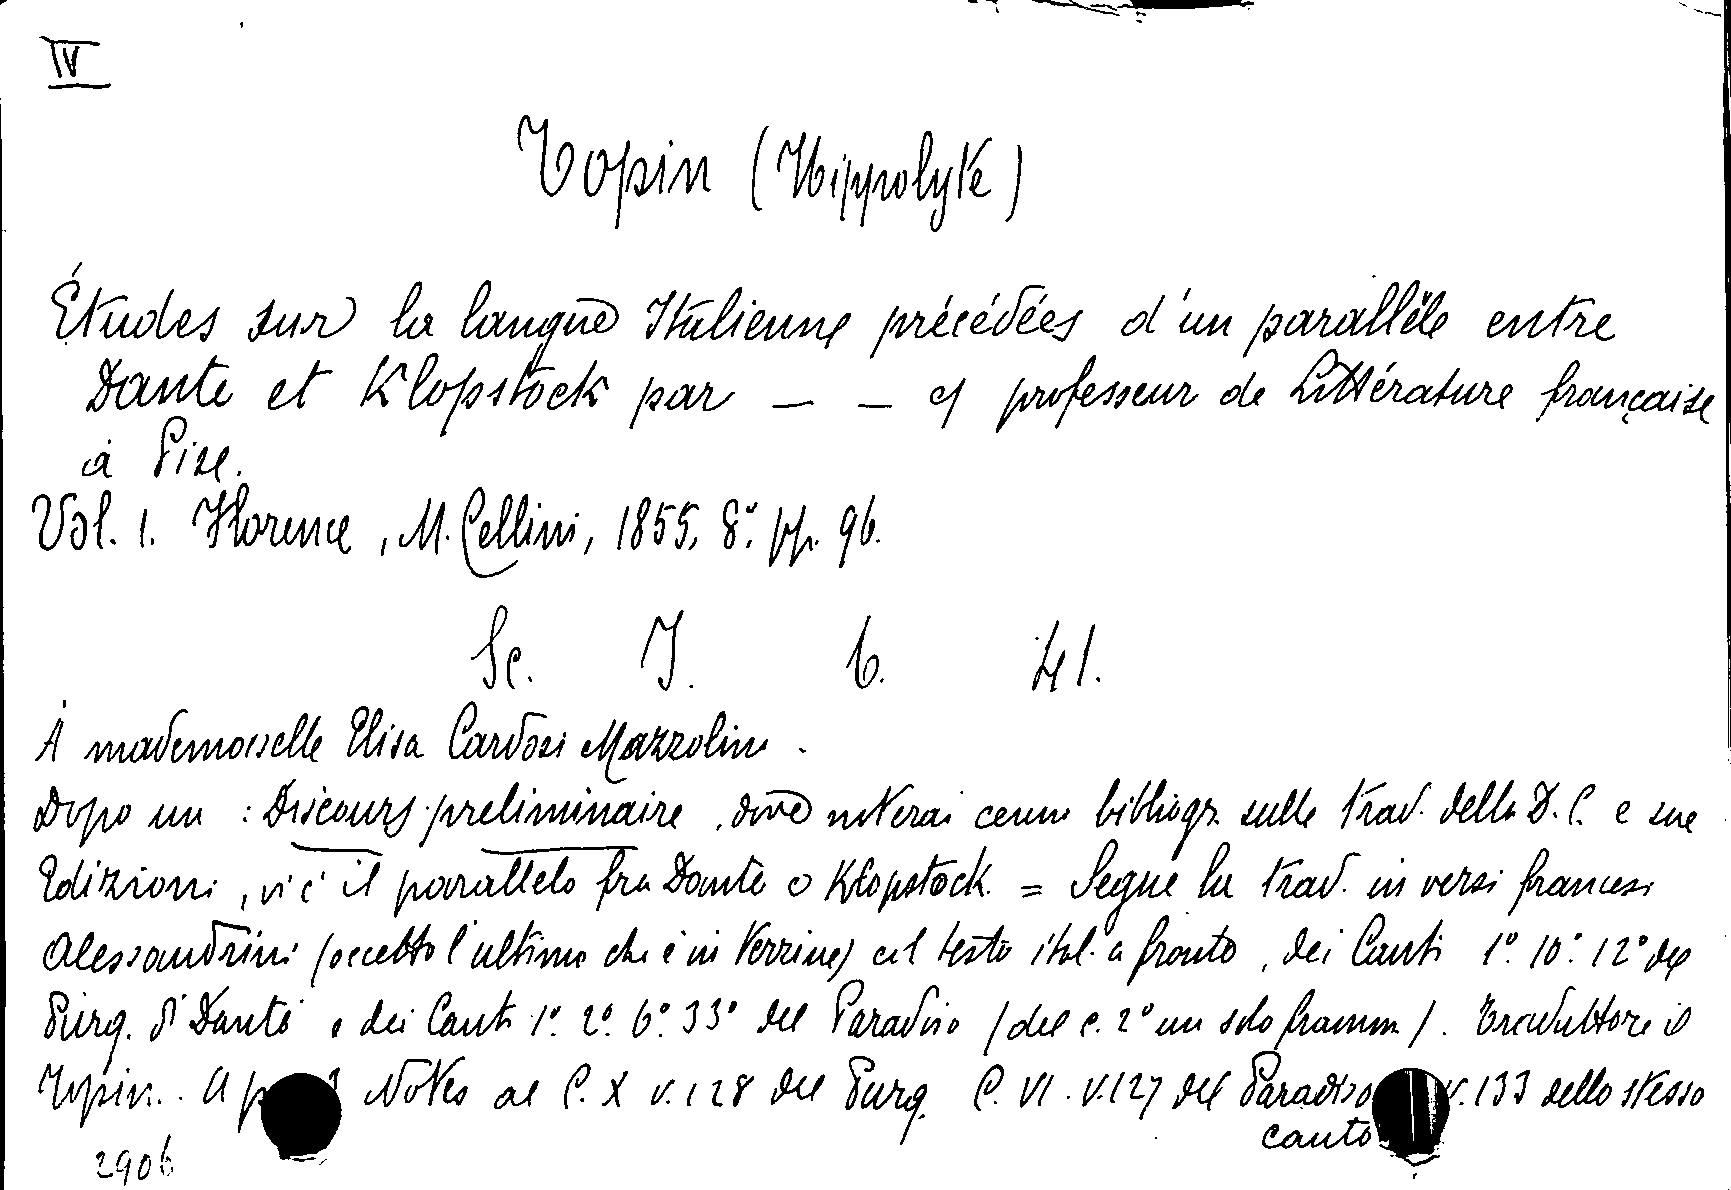 IV
Topin (Hippolyte)
Études sur la langue Italienne précédées d'un parallèle entre
Dante et Klopstock par — — professeur de Littérature française
à Pise.
Vol. 1. Florence, M. Cellini, 1855, 8°. pp. 96.
Sc. I. 6. 41.
À mademoiselle Elisa Cardosi Mazzolini.
Dopo un : Discours preliminaire, dove noterai cenni bibliogr. sulle trad. della D. C. e sue
Edizioni, vi è il parallelo fra Dante e Klopstock. = Segue la trad. in versi francesi
Alessandrini (eccetto l'ultimo che è in terzine) col testo ital. a fronte, dei Canti 1° 10° 12° del
Purg. di Dante e dei Canti 1° 2° 6° 33° del Paradiso (del c. 2° un solo framm.). Traduttore il
Topin. Notes al C. X v. 128 del Purg. C. VI. v. 127 del Paradiso v. 133 dello stesso
canto
2906